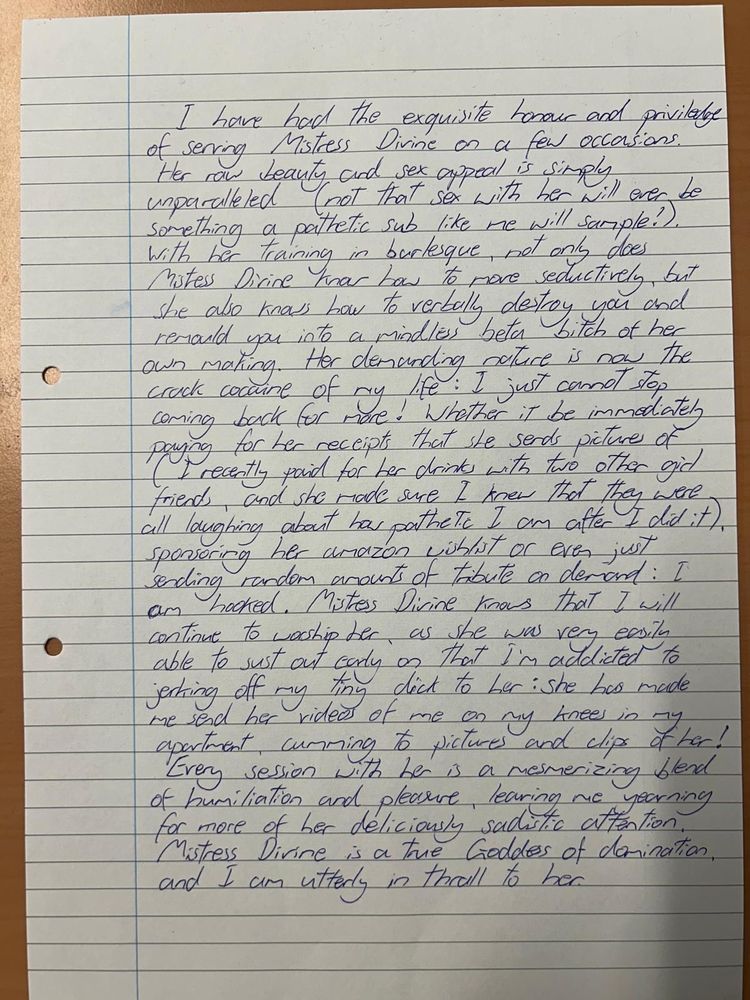 I have had the exquisite honour and priviledge
of serving Mistress Divine on a few occasions.
Her raw beauty and sex appeal is simply
unparalleled (not that sex with her will ever be
something a pathetic sub like me will sample!).
With her training in burlesque, not only does
Mistess Divine know how to move seductively, but
she also knows how to verbally destroy you and
remould you into a mindless beta bitch of her
own making. Her demanding nature is now the
crack cocaine of my life: I just cannot stop
coming back for more! Whether it be immediately
paying for her receipts that she sends pictures of
(I recently paid for her drinks with two other girl
friends, and she made sure I knew that they were
all laughing about how pathetic I am after I did it),
sponsoring her amazon wishlist or even just
sending random amounts of tribute on demand: I
am hooked. Mistress Divine knows that I will
continue to worship her, as she was very easily
able to sust out early on that I'm addicted to
jerking off my tiny dick to her: she has made
me send her videos of me on my knees in my
apartment, cumming to pictures and clips of her!
Every session with her is a mesmerizing blend
of humiliation and pleasure, leaving me yearning
for more of her deliciously sadistic attention.
Mistress Divine is a true Goddess of domination,
and I am utterly in thrall to her.